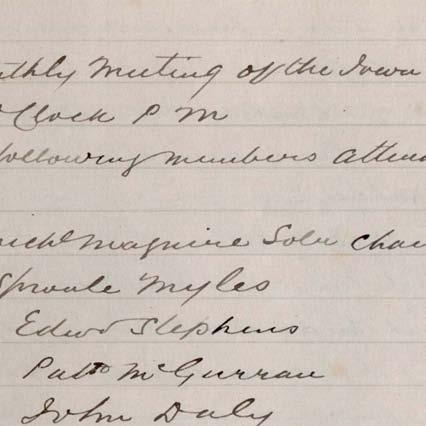 nthly Meeting of the Town
O'Clock P M
following members atten
Mich^l Maguire Solr Chai
Sproule Myles
Edwd Stephens
Pat^k McGurran
John Daly